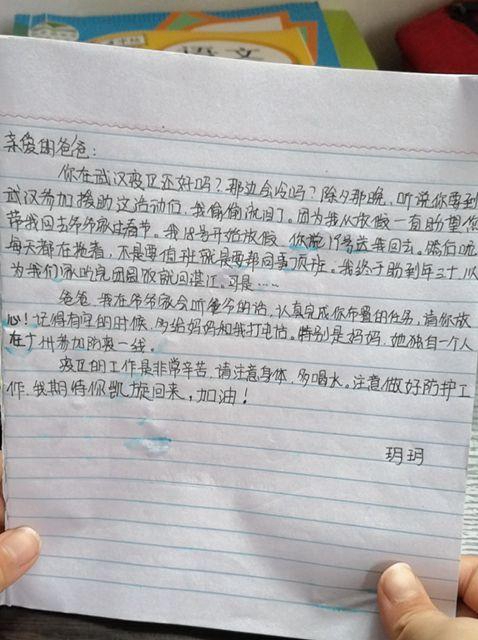 语文
亲爱的爸爸：
你在武汉疫区还好吗？那边会冷吗？除夕那晚，听说你要到
武汉参加援助这活动们，我偷偷流泪了。因为我从放假一直盼望您
带我回去爷爷家过春节。我18号开始放假，你说19号送我回去。然后呢
每天都在拖着，不是要值班就是要帮同事顶班。我终于盼到年三十，以
为我们家的完团圆饭就回湛江，可是……
爸爸，我在爷爷家会听爷爷的话，认真完成你布置的任务，请你放
心！记得有空的时候，多给妈妈和我打电话。特别是妈妈，她独自一个人
在广州参加防疫一线。
疫区的工作是非常辛苦，请注意身体，多喝水。注意做好防护工
作，我期待你凯旋回来，加油！
玥玥